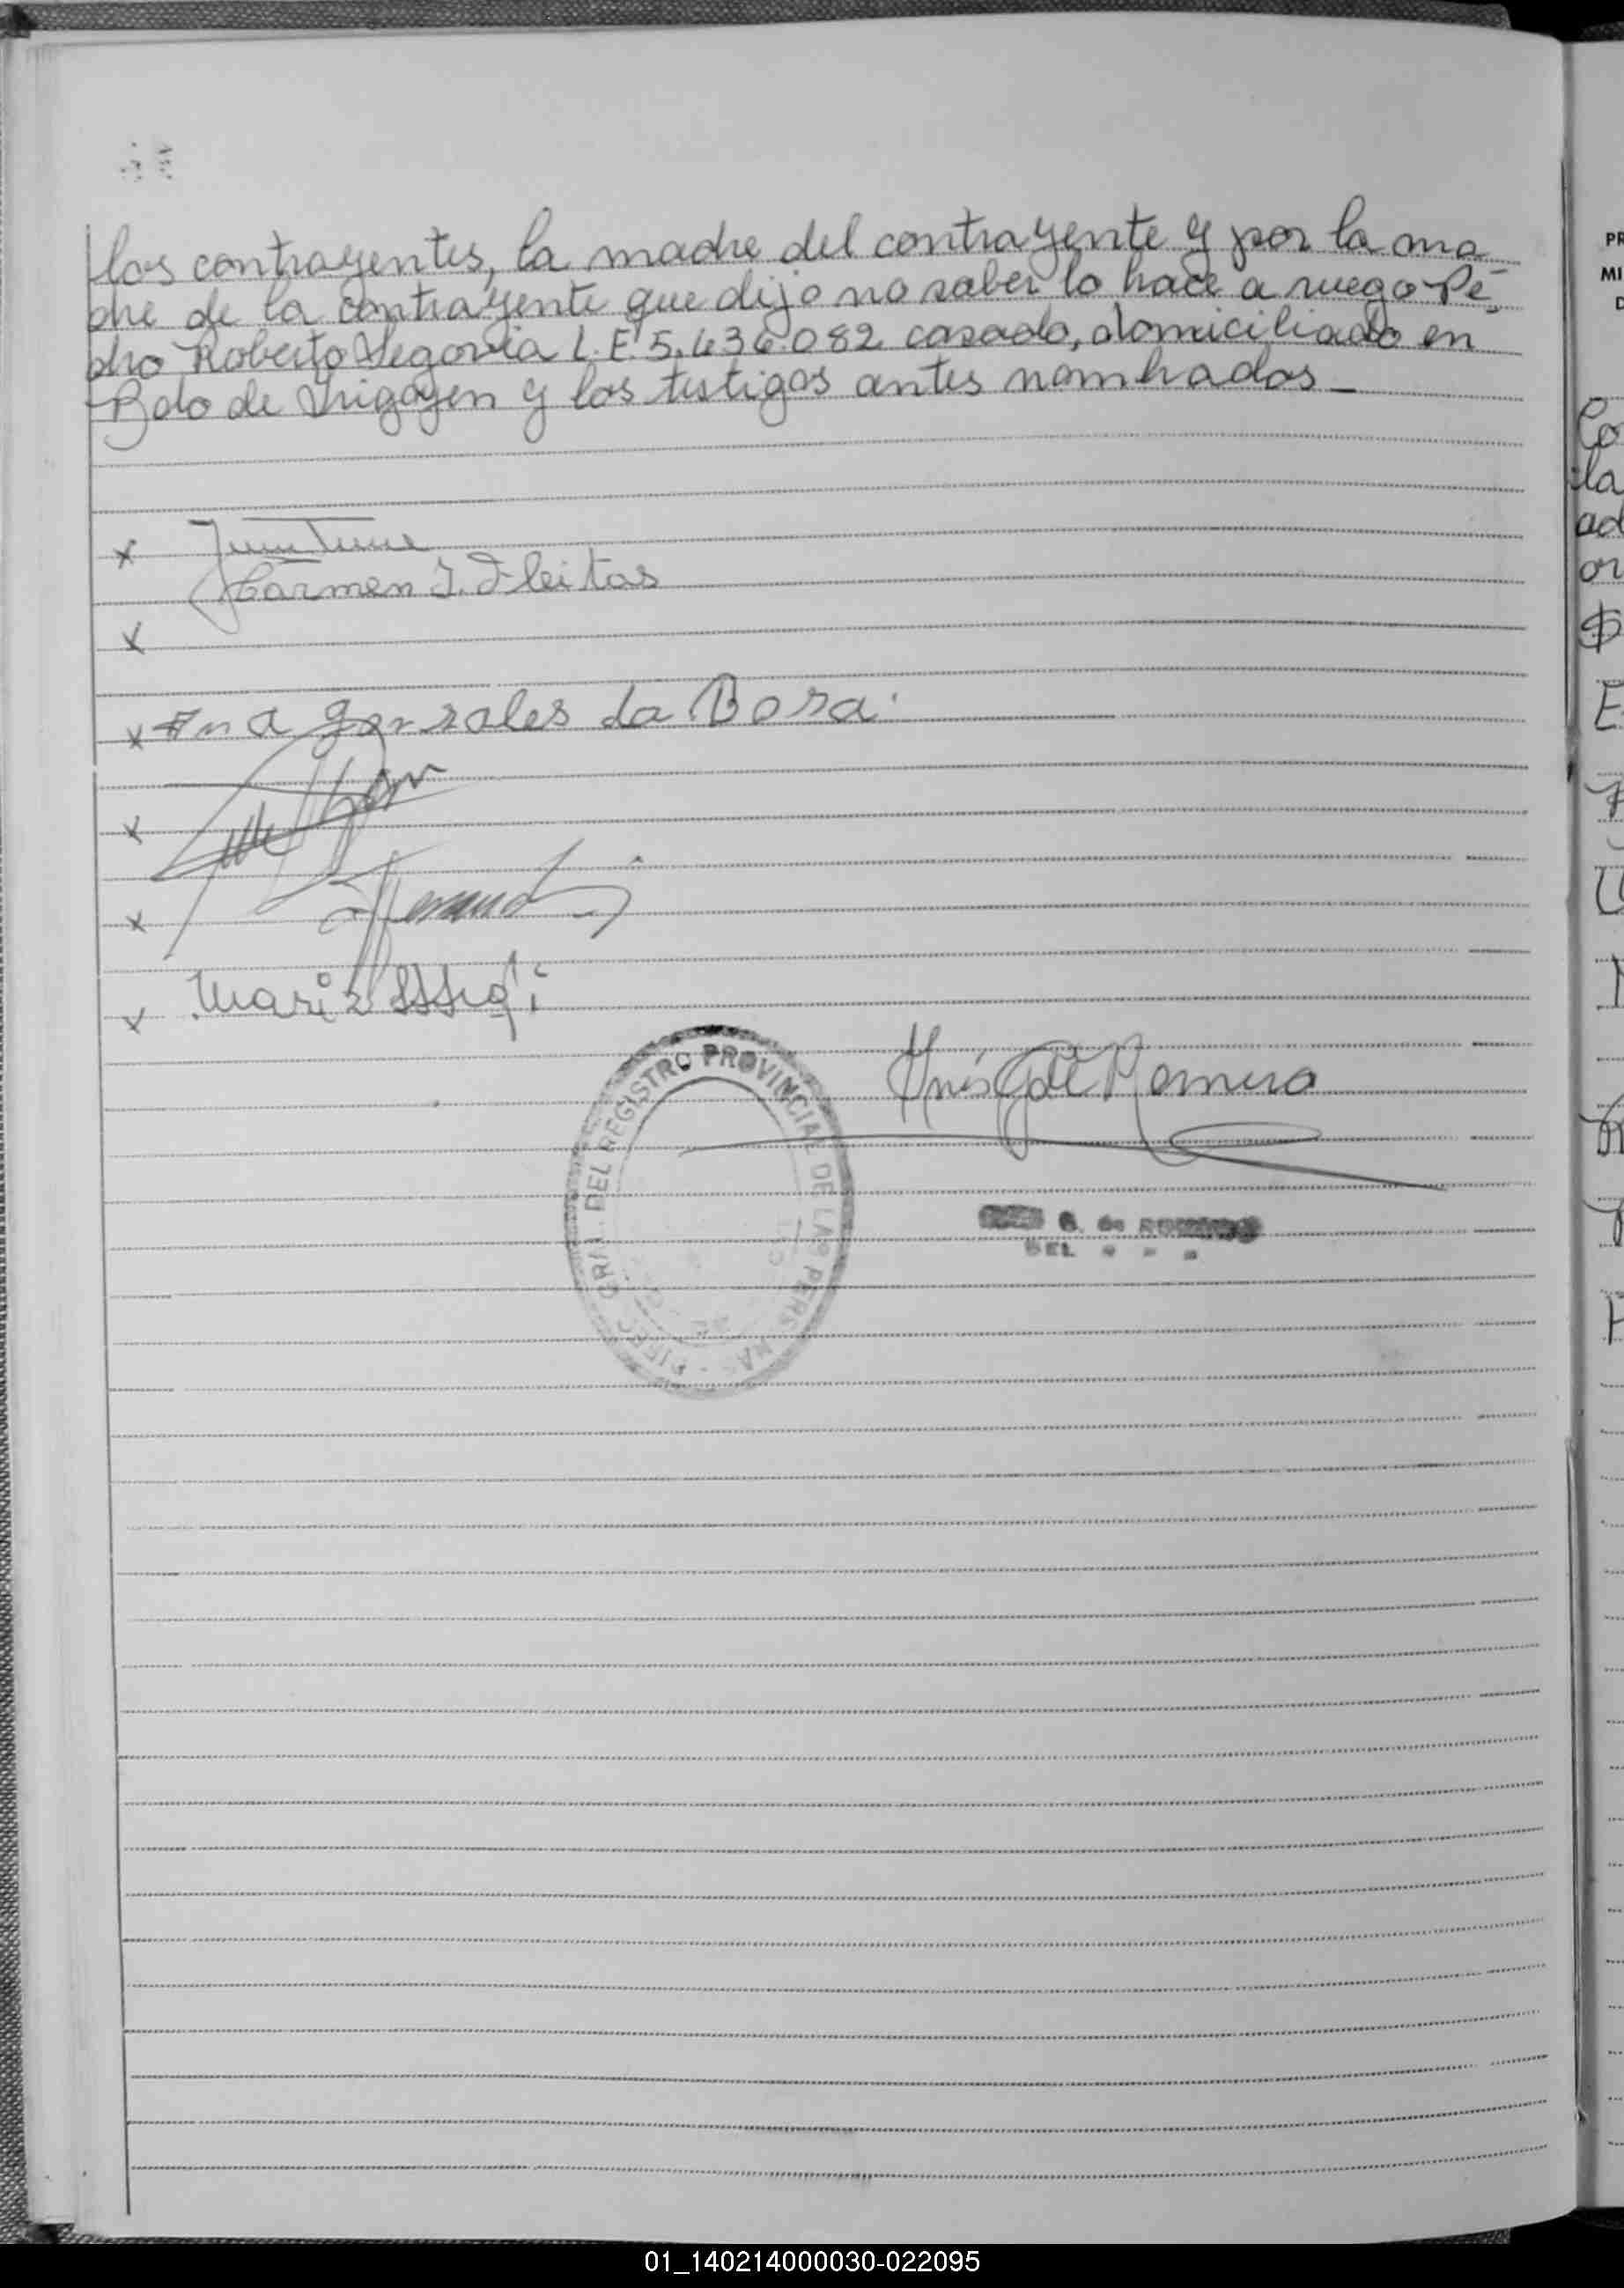 los contrayentes, la madre del contrayente y por la ma-
dre de la contrayente que dijo no saber lo hace a ruego Pe-
dro Roberto Segovia L.E. 5.436.082 casado, domiciliado en
Bdo de Irigoyen y los testigos antes nombrados _
x
Carmen I. Fleitas
x
x Ana Gonzales da Rosa.
x
x
x Maria
Inés G de Romero
DEL REGISTRO PROVINCIAL DE LAS PERSONAS
G. de ROMERO
DEL
PR
MI
D
Co
la
ad
or
E
01_140214000030-022095